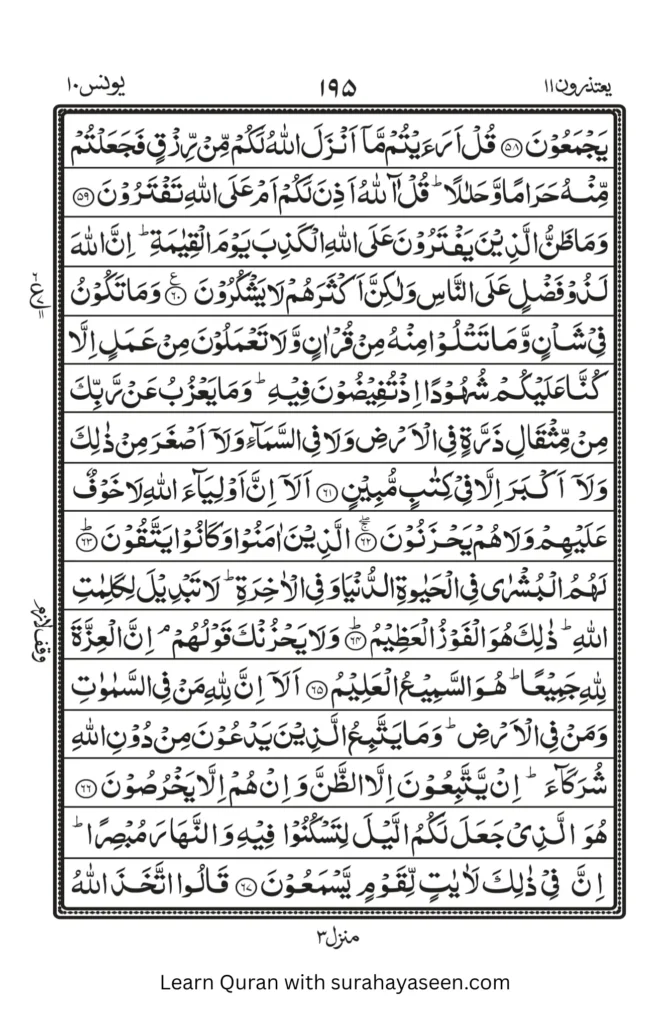 یعتذرون۱۱ ۱۹۵ یونس۱۰
يَجْمَعُوْنَ ۝۵۸ قُلْ اَرَءَيْتُمْ مَّاۤ اَنْزَلَ اللّٰهُ لَكُمْ مِّنْ رِّزْقٍ فَجَعَلْتُمْ
مِّنْهُ حَرَامًا وَّحَلٰلًا ؕ قُلْ آٰللّٰهُ اَذِنَ لَكُمْ اَمْ عَلَى اللّٰهِ تَفْتَرُوْنَ ۝۵۹
وَمَا ظَنُّ الَّذِيْنَ يَفْتَرُوْنَ عَلَى اللّٰهِ الْكَذِبَ يَوْمَ الْقِيٰمَةِ ؕ اِنَّ اللّٰهَ
لَذُوْ فَضْلٍ عَلَى النَّاسِ وَلٰكِنَّ اَكْثَرَهُمْ لَا يَشْكُرُوْنَ ۝۶۰ ع وَمَا تَكُوْنُ
فِيْ شَاْنٍ وَّمَا تَتْلُوْا مِنْهُ مِنْ قُرْاٰنٍ وَّلَا تَعْمَلُوْنَ مِنْ عَمَلٍ اِلَّا
كُنَّا عَلَيْكُمْ شُهُوْدًا اِذْ تُفِيْضُوْنَ فِيْهِ ؕ وَمَا يَعْزُبُ عَنْ رَّبِّكَ
مِنْ مِّثْقَالِ ذَرَّةٍ فِي الْاَرْضِ وَلَا فِي السَّمَآءِ وَلَاۤ اَصْغَرَ مِنْ ذٰلِكَ
وَلَاۤ اَكْبَرَ اِلَّا فِيْ كِتٰبٍ مُّبِيْنٍ ۝۶۱ اَلَاۤ اِنَّ اَوْلِيَآءَ اللّٰهِ لَا خَوْفٌ
عَلَيْهِمْ وَلَا هُمْ يَحْزَنُوْنَ ۝۶۲ۚۖ الَّذِيْنَ اٰمَنُوْا وَكَانُوْا يَتَّقُوْنَ ۝۶۳ؕ
لَهُمُ الْبُشْرٰى فِي الْحَيٰوةِ الدُّنْيَا وَفِي الْاٰخِرَةِ ؕ لَا تَبْدِيْلَ لِكَلِمٰتِ
اللّٰهِ ؕ ذٰلِكَ هُوَ الْفَوْزُ الْعَظِيْمُ ۝۶۴ؕ وَلَا يَحْزُنْكَ قَوْلُهُمْ ۘ اِنَّ الْعِزَّةَ
لِلّٰهِ جَمِيْعًا ؕ هُوَ السَّمِيْعُ الْعَلِيْمُ ۝۶۵ اَلَاۤ اِنَّ لِلّٰهِ مَنْ فِي السَّمٰوٰتِ
وَمَنْ فِي الْاَرْضِ ؕ وَمَا يَتَّبِعُ الَّذِيْنَ يَدْعُوْنَ مِنْ دُوْنِ اللّٰهِ
شُرَكَآءَ ؕ اِنْ يَّتَّبِعُوْنَ اِلَّا الظَّنَّ وَاِنْ هُمْ اِلَّا يَخْرُصُوْنَ ۝۶۶
هُوَ الَّذِيْ جَعَلَ لَكُمُ الَّيْلَ لِتَسْكُنُوْا فِيْهِ وَالنَّهَارَ مُبْصِرًا ؕ
اِنَّ فِيْ ذٰلِكَ لَاٰيٰتٍ لِّقَوْمٍ يَّسْمَعُوْنَ ۝۶۷ قَالُوا اتَّخَذَ اللّٰهُ
وقف لازم
منزل۳
Learn Quran with surahayaseen.com